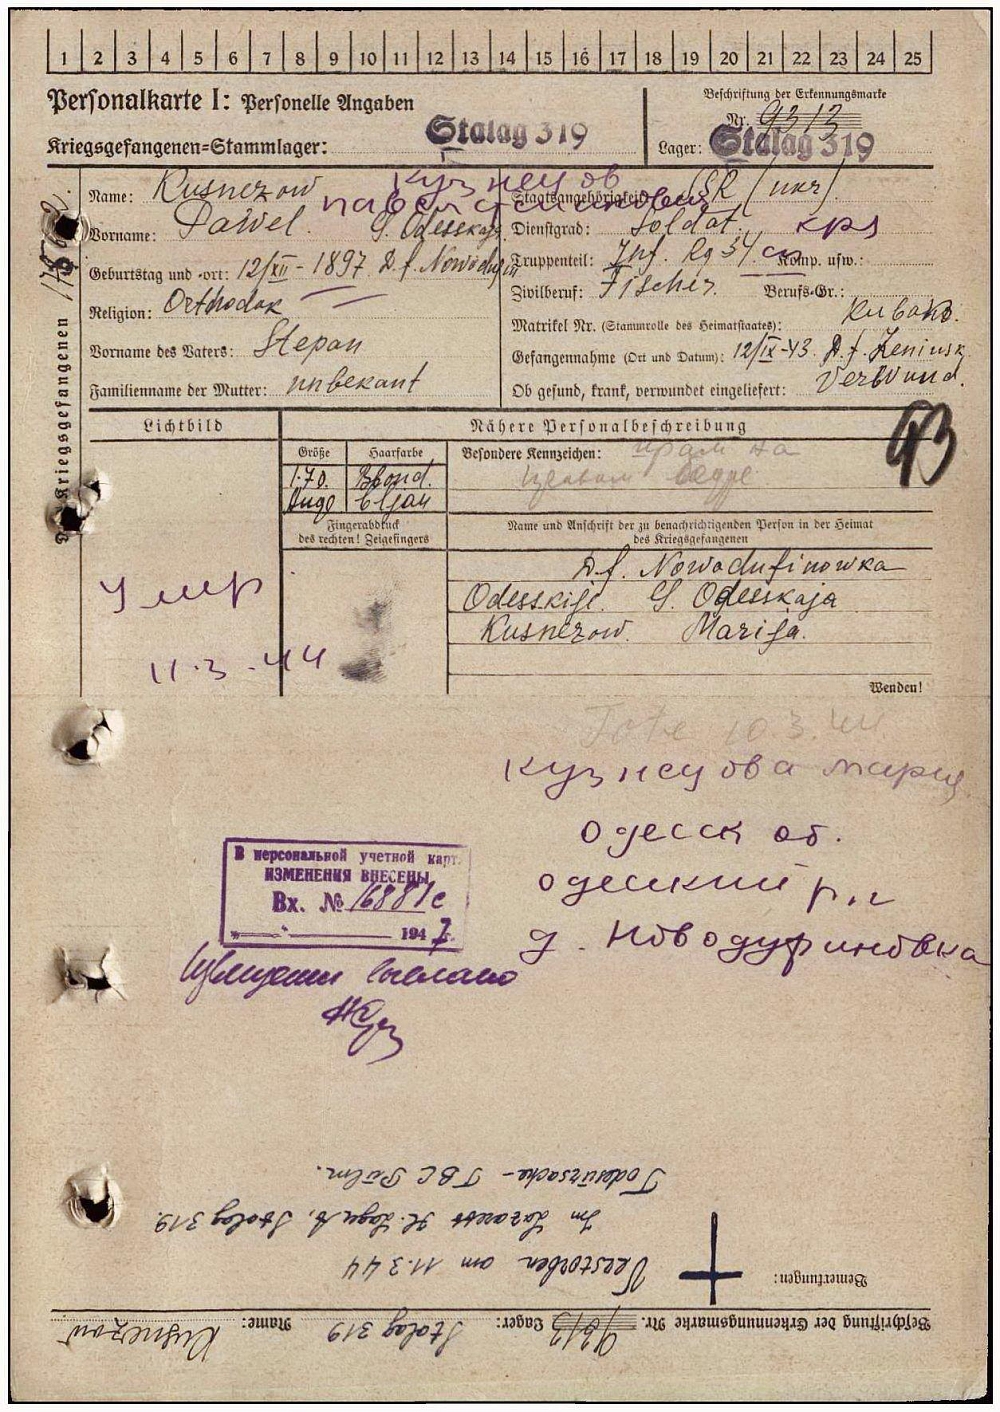 1 2 3 4 5 6 7 8 9 10 11 12 13 14 15 16 17 18 19 20 21 22 23 24 25
Personalkarte I: Personelle Angaben
Kriegsgefangenen-Stammlager: Stalag 319
Beschriftung der Erkennungsmarke
Nr. 9313
Lager: Stalag 319
Des Kriegsgefangenen
Name: Kusnezow
Кузнецов
Павел
Vorname: Pawel
G. Odesskaja
Geburtstag und -ort: 12/XII - 1897 D.f. Nowodufin
Religion: Orthodok
Vorname des Vaters: Stepan
Familienname der Mutter: unbekant
Staatsangehörigkeit: (ukr)
Dienstgrad: Soldat. кра
Truppenteil: Inf. Rg 34 сп Komp. usw.:
Zivilberuf: Fischer. Berufs-Gr.:
Matrikel Nr. (Stammrolle des Heimatstaates): Kubano.
Gefangennahme (Ort und Datum): 12/IX-43. D.f.
Ob gesund, krank, verwundet eingeliefert: Verwund.
Lichtbild
Nähere Personalbeschreibung
Größe Haarfarbe
1.70. Blond.
Auge
Besondere Kennzeichen: шрам на
бедре
93
Fingerabdruck
des rechten! Zeigefingers
Name und Anschrift der zu benachrichtigenden Person in der Heimat
des Kriegsgefangenen
D.f. Nowodufinowka
Odesskije. G. Odesskaja
Kusnezow. Marija.
Умер
11.3.44
Wenden!
Tote 10.3.44
Кузнецова Мария
Одесск об.
Одесский р.н
д. Новодуфиновка
В персональной учетной карт.
ИЗМЕНЕНИЯ ВНЕСЕНЫ
Вх. № 16881с
194 7 г.
Извещение выслано
Beschriftung der Erkennungsmarke Nr. 9313 Lager: Stalag 319 Name: Kusnezow
Bemerkungen:
Verstorben am 11.3.44
Im Lazarett H. Lager A. Stalag 319.
Todesursache - TBC Pulm.